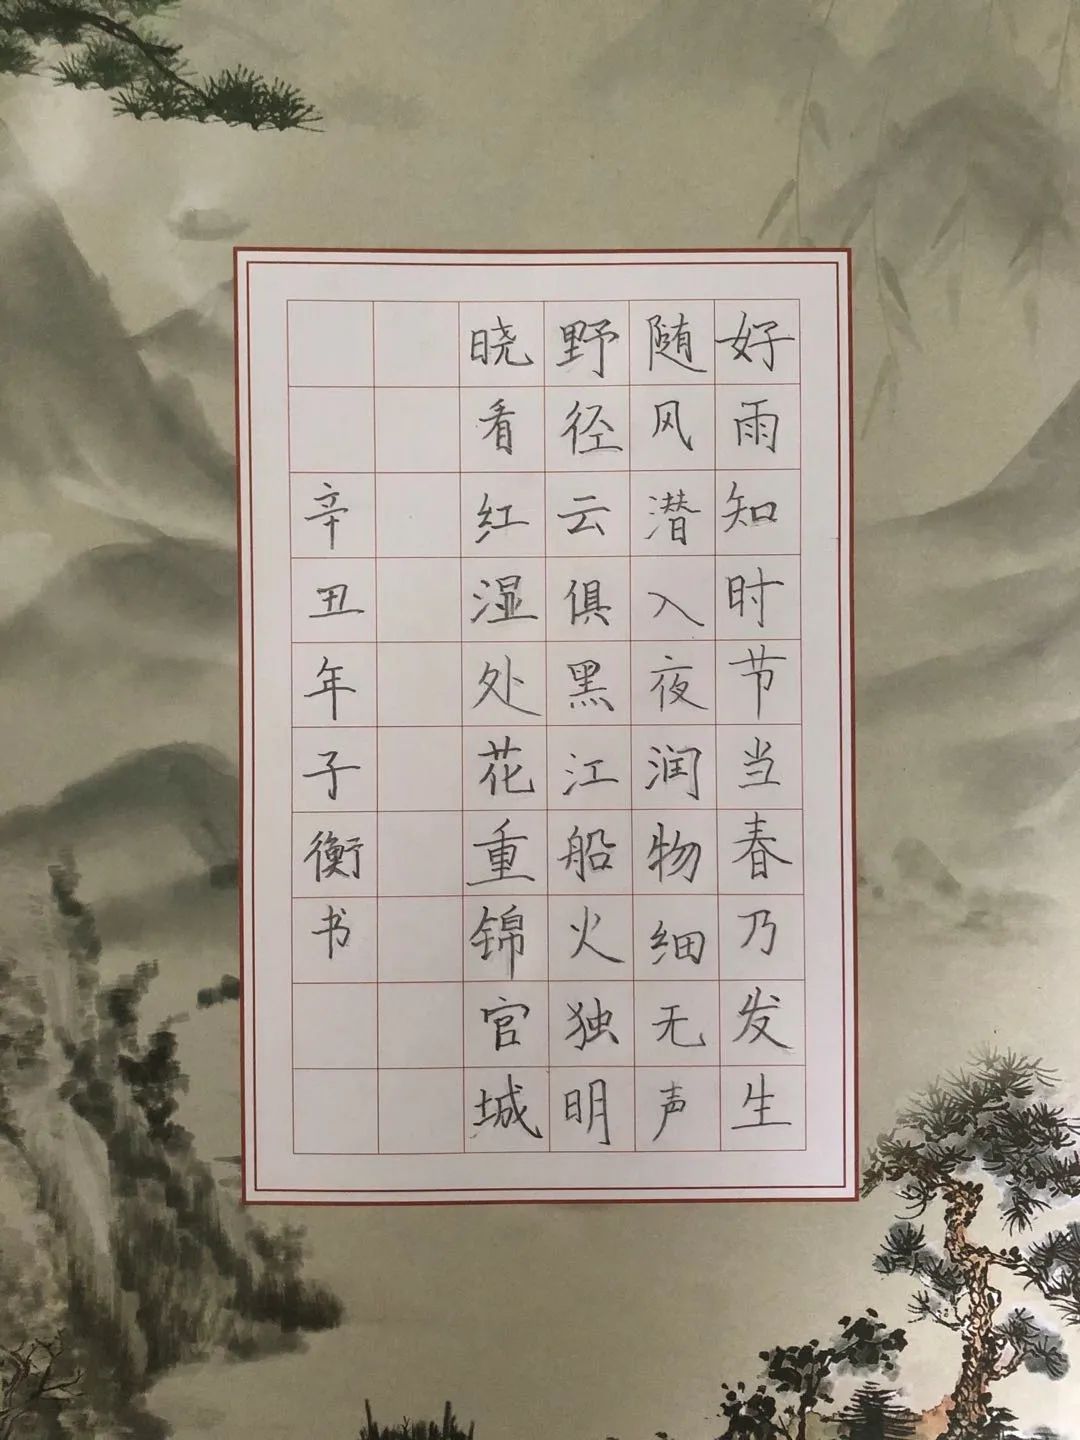 好雨知时节当春乃发生
随风潜入夜润物细无声
野径云俱黑江船火独明
晓看红湿处花重锦官城
辛丑年子衡书